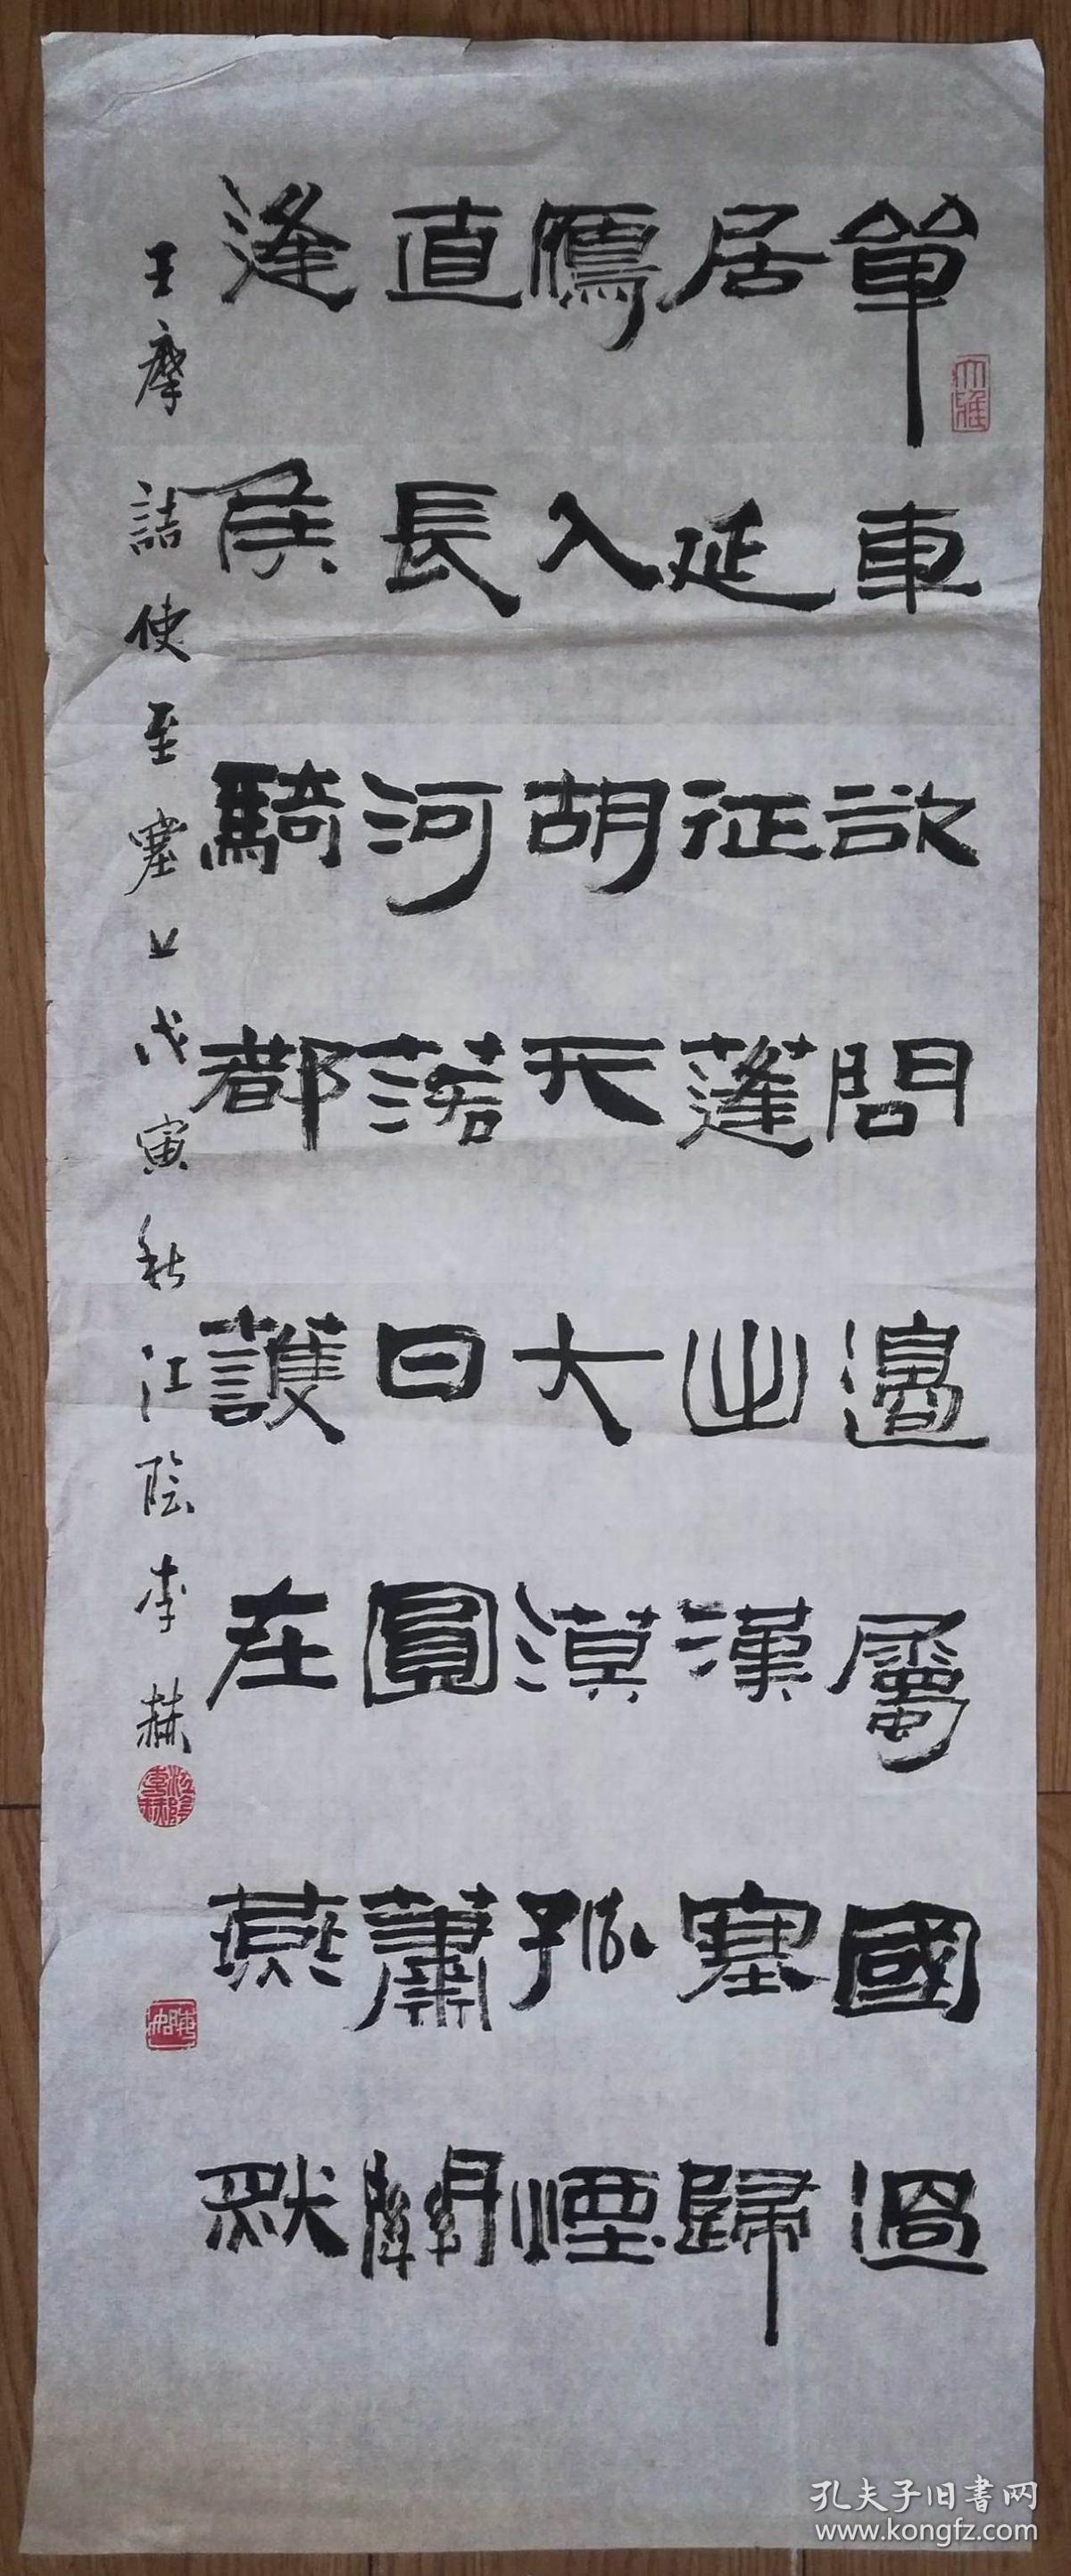 單車欲問邊屬國過
居延征蓬出漢塞歸
鴈入胡天大漠孤煙
直長河落日圓蕭關
逢候騎都護在燕然
王摩詰使至塞上戊寅秋江陰李赫
大雅
孔夫子旧書网
www.kongfz.com